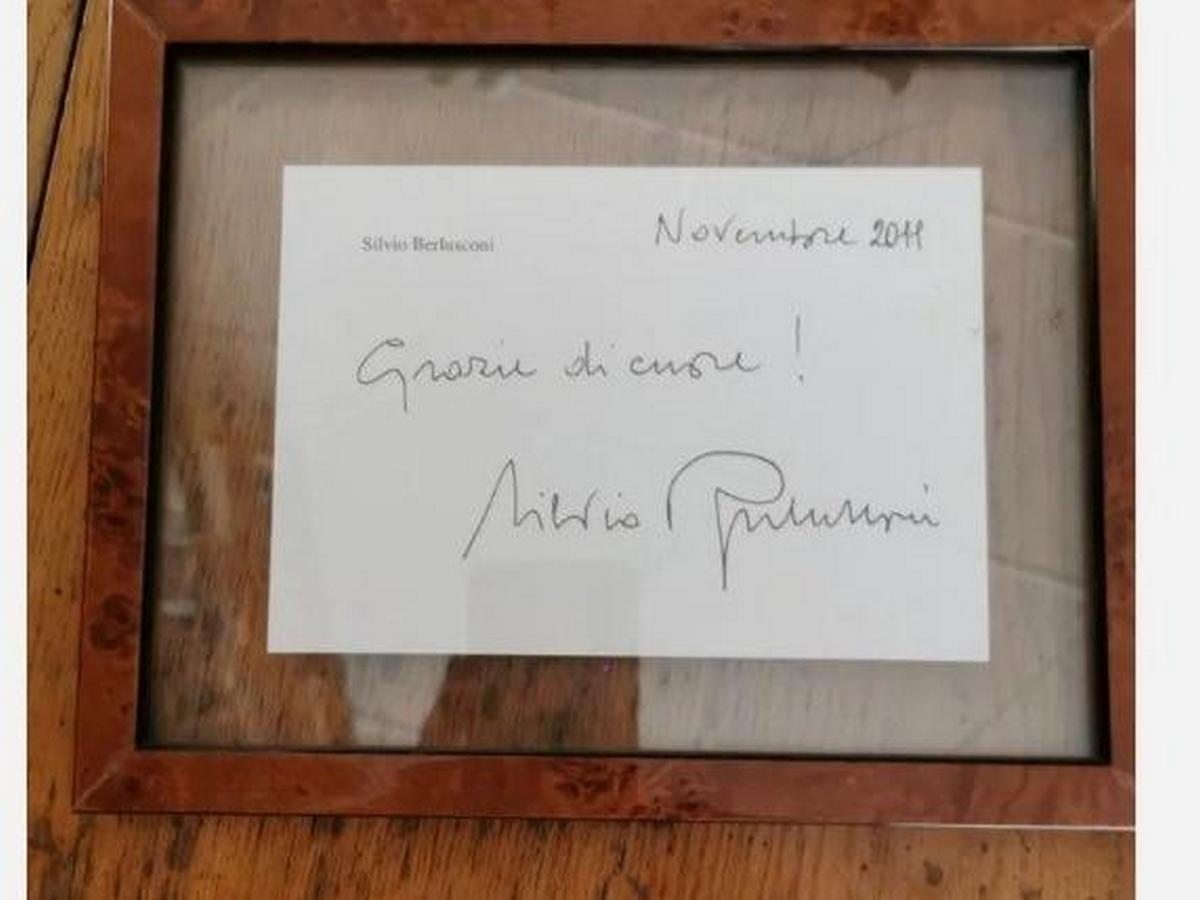 Silvio Berlusconi
Novembre 2011
Grazie di cuore!
Silvio Berlusconi